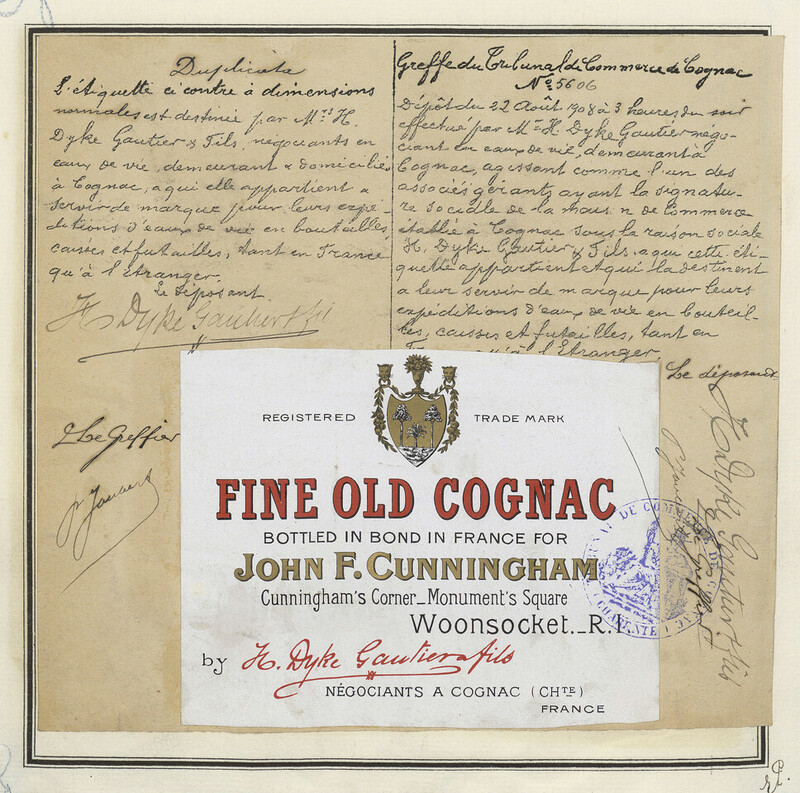 Duplicata
L'étiquette ci contre à dimensions
normales est destinée par Mrs H.
Dyke Gautier & Fils, négociants en
eaux de vie, demeurant & domiciliés
à Cognac, a qui elle appartient a
servir de marque pour leurs expé-
ditions d'eaux de vie en bouteilles,
caisses et futailles, tant en France
qu'à l'étranger.
Le déposant
H. Dyke Gautier & fils
Le Greffier
Greffe du Tribunal de Commerce de Cognac
No 5606
Dépôt du 22 Août 1908 à 3 heures du soir
effectué par Mr H. Dyke Gautier négo-
ciant en eaux de vie, demeurant à
Cognac, agissant comme l'un des
associés gérants ayant la signatu-
re sociale de la maison de Commerce
établie à Cognac sous la raison sociale
H. Dyke Gautier & Fils, a qui cette éti-
quette appartient et qui la destinent
a leur servir de marque pour leurs
expéditions d'eaux de vie en bouteil-
les, caisses et futailles, tant en
l'Etranger.
Le déposant
H. Dyke Gautier & fils
Le Greffier
REGISTERED TRADE MARK
FINE OLD COGNAC
BOTTLED IN BOND IN FRANCE FOR
JOHN F. CUNNINGHAM
Cunningham's Corner_Monument's Square
Woonsocket._R.I.
by H. Dyke Gautier & fils
NÉGOCIANTS A COGNAC (CHTE)
FRANCE
DE COMMERCE DE
CHARENTE